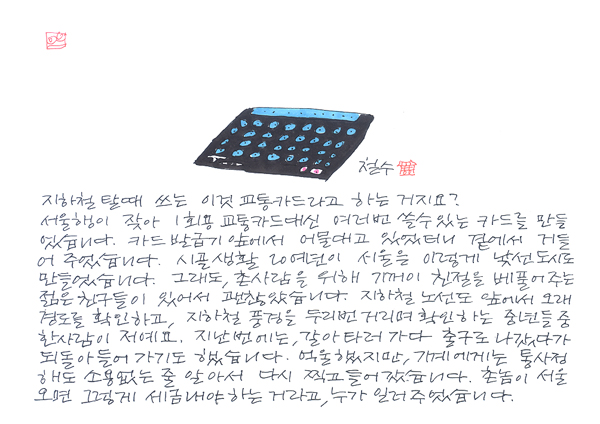 철수
지하철 탈때 쓰는 이것 교통카드라고 하는 거지요?
서울행이 잦아 1회용 교통카드대신 여러번 쓸수있는 카드를 만들
었습니다. 카드발급기 앞에서 어물대고 있었더니 곁에서 거들
어 주었습니다. 시골생활 20여년이 서울을 이렇게 낯선도시로
만들었습니다. 그래도, 촌사람을 위해 기꺼이 친절을 베풀어주는
젊은친구들이 있어서 괜찮았습니다. 지하철 노선도 앞에서 오래
경로를 확인하고, 지하철 풍경을 두리번거리며 확인하는 중년들 중
한사람이 저예요. 지난번에는, 갈아타러 가다 출구로 나갔다가
되돌아들어가기도 했습니다. 억울했지만, 기계에게는 통사정
해도 소용없는 줄 알아서 다시 찍고들어갔습니다. 촌놈이 서울
오면 그렇게 세금내야하는 거라고, 누가 일러주었습니다.